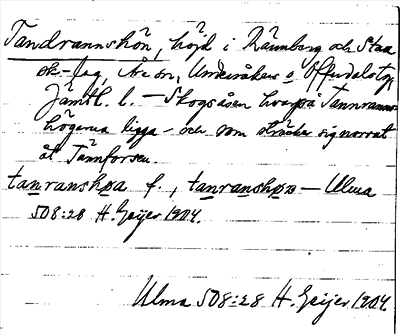 Tandrannshön, höjd i Rännberg och Staa
ok-Jag, Åre sn, Undersåkers o Offerdals tg,
Jämtl. l. — Skogsåsen hvarpå Tannranns-
högarna ligga — och som sträcker sig norrut
åt Tännforsen.
tanranshøa f., tanranshøn — Ulma
508:28 H. Geijer 1904.
Ulma 508:28 H. Geijer 1904.